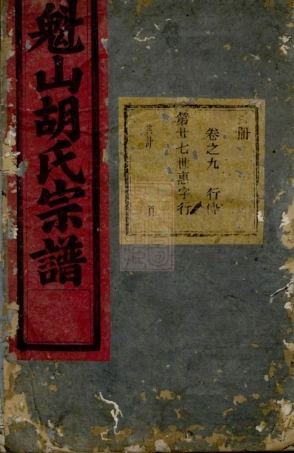 魁山胡氏宗譜
卷之九 行傳
第廿七世惠字行